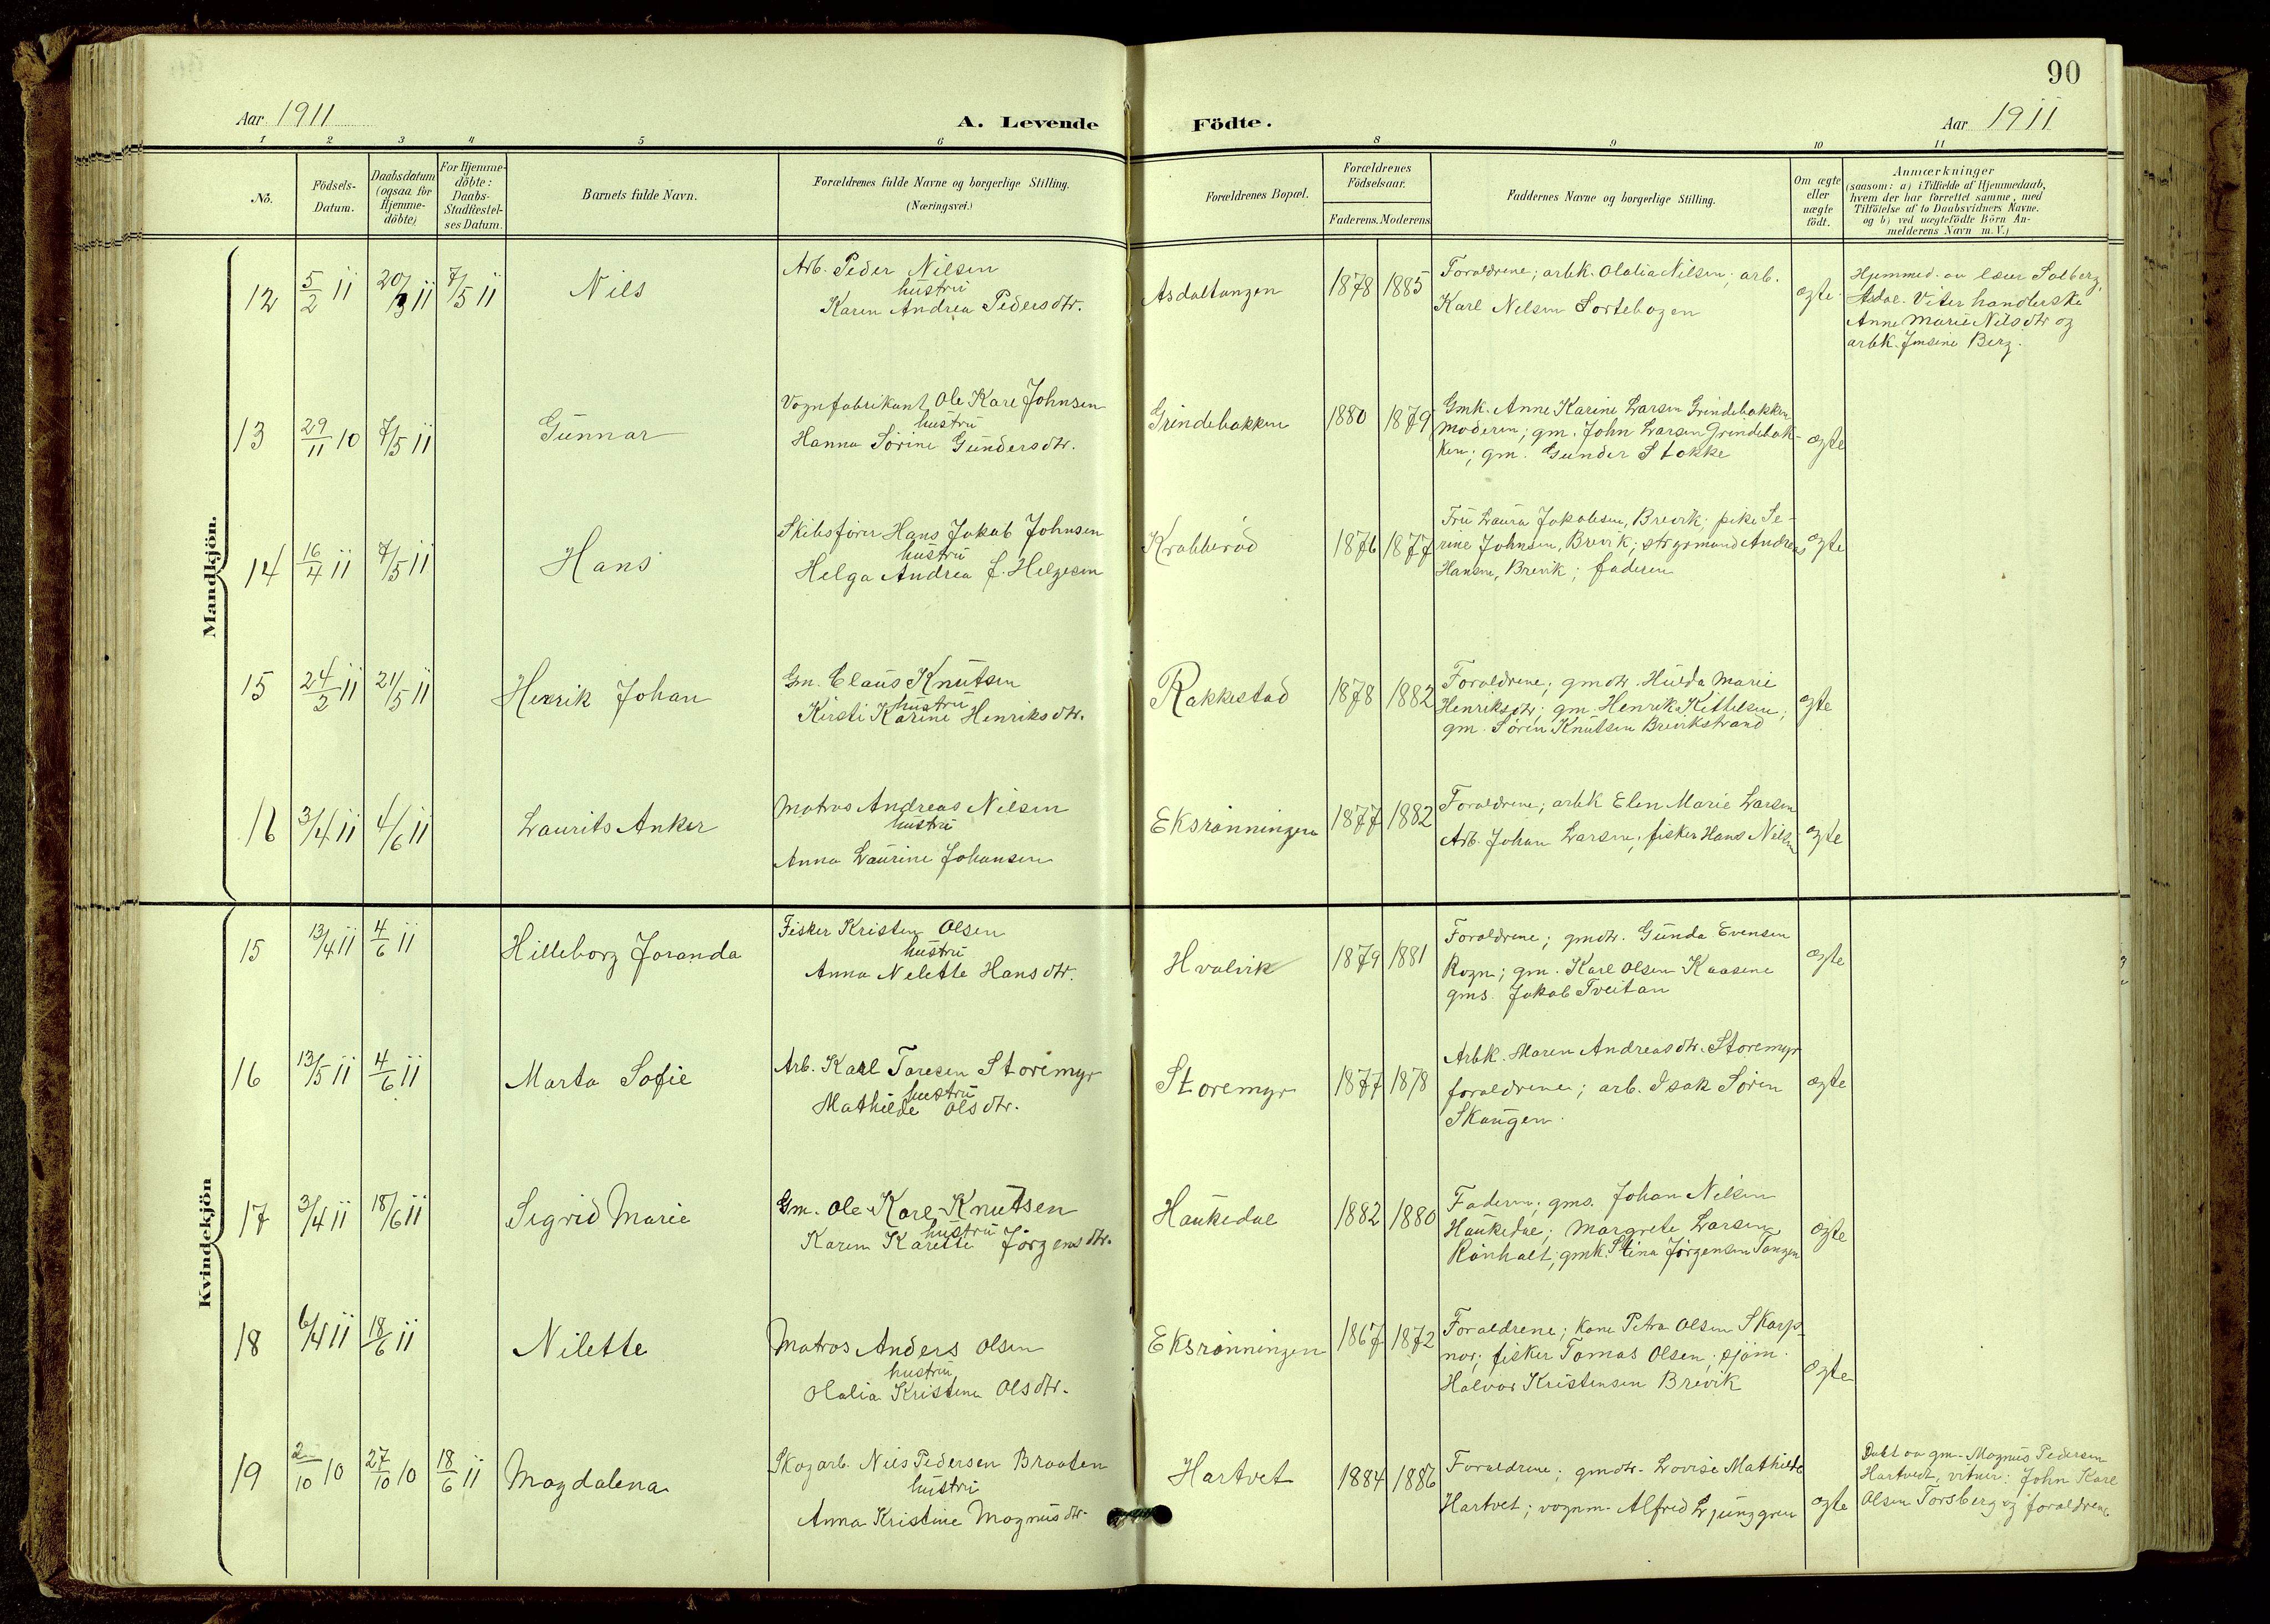 90
Aar 1911 A. Levende Födte. Aar 1911
1 2 3 4 5 6 8 9 10 11
No.
Födsels-
Datum.
Daabsdatum
(ogsaa for
Hjemme-
döbte)
For Hjemme-
döbte:
Daabs-
Stadfæstel-
ses Datum.
Barnets fulde Navn.
Forældrenes fulde Navne og borgerlige Stilling.
(Næringsvei.)
Forældrenes Bopæl.
Forældrenes
Födselsaar.
Faderens. Moderens
Faddernes Navne og borgerlige Stilling.
Om ægte
eller
uægte
födt.
Anmærkninger
(saasom: a) i Tilfælde af Hjemmedaab,
hvem der har forrettet samme, med
Tilföielse af to Daabsvidners Navne.
og b) ved uægtefödte Börn An-
melderens Navn m. V.)
Mandkjön.
12 5/2 11 20/3 11 7/5 11 Nils
Arb. Peder Nilsen
hustru
Karen Andrea Pedersdtr.
Asdaltangen 1878 1885
Foraldrene; arbk. Olalia Nilsen; arb.
Karl Nelsen Sortebogen
ægte
Hjemmed. av lærer Solberg,
Asdal. Viter handlerske
Anne Marie Nilsdtr og
arbk. Jensine Berg.
13 29/11 10 7/5 11 Gunnar
Vognfabrikant Ole Kare Johnsen
hustru
Hanna Sörine Gundersdtr.
Grindebakken 1880 1879
Gmk. Anne Karine Larsen Grindebakken
moderen; gm. John Larsen Grindebak-
ken; gm. Gunder Stokke
ægte
14 16/4 11 7/5 11 Hans
Skibsförer Hans Jakob Johnsen
hustru
Helga Andrea f. Helgesen
Krabberöd 1876 1877
Fru Laura Jakobsen, Brevik; pike Se-
rine Johnsen, Brevik; styrmand Andreas
Hansen, Brevik; faderen
ægte
15 24/2 11 21/5 11 Henrik Johan
Gm. Claus Knutsen
hustru
Kirsti Karine Henriksdtr.
Rakkestad 1878 1882
Foraldrene; gmdtr. Hulda Marie
Henriksdtr; gm. Henrik Kittelsen;
gm. Sören Knutsen Brevikstrand
ægte
16 3/4 11 4/6 11 Laurits Anker
Matros Andreas Nilsen
hustru
Anna Laurine Johansen
Eksrönningen 1877 1882
Foraldrene; arbk Elen Marie Larsen
Arb. Johan Larsen; fisker Hans Nilsen
ægte
Kvindekjön
15 13/4 11 4/6 11 Hilleborg Joranda
Fisker Kristen Olsen
hustru
Anna Nelette Hansdtr.
Hvalvik 1879 1881
Foraldrene; gmdtr. Gunda Evensen
Rogn; gm. Karl Olsen Kaasene
gms. Jakob Tveitan
ægte
16 13/5 11 4/6 11 Marta Sofie
Arb. Karl Taresen Storemyr
hustru
Mathilde Olsdtr.
Storemyr 1877 1878
Arbk. Maren Andreasdtr. Storemyr
foraldrene; arb. Isak Sören
Skaugen.
ægte
17 3/4 11 18/6 11 Sigrid Marie
Gm. Ole Karl Knutsen
hustru
Karen Karette Jörgensdtr.
Haukedal 1882 1880
Faderen; gms. Johan Nelsen
Haukedal; Margrete Larsen
Rönholt; gmk. Stina Jörgensen Tangen
ægte
18 6/4 11 18/6 11 Nilette
Matros Anders Olsen
hustru
Olalia Kristene Olsdtr.
Eksrönningen 1867 1872
Foraldrene; kone Petra Olsen Skarp
nor; fisker Tomas Olsen; sjöm.
Halvor Kristensen Brevik
ægte
19 2/10 10 27/10 10 18/6 11 Magdalena
Skogarb. Nils Pedersen Braaten
hustru
Anna Kristine Magnusdtr.
Hartvet 1884 1886
Foraldrene; gmdtr. Lovise Mathilde
Hartvet; vognm. Alfred Ljunggren
ægte
Döbt av gm. Magnus Pedersen
Hartvedt; vitner: John Karl
Olsen Torsberg og foraldrene